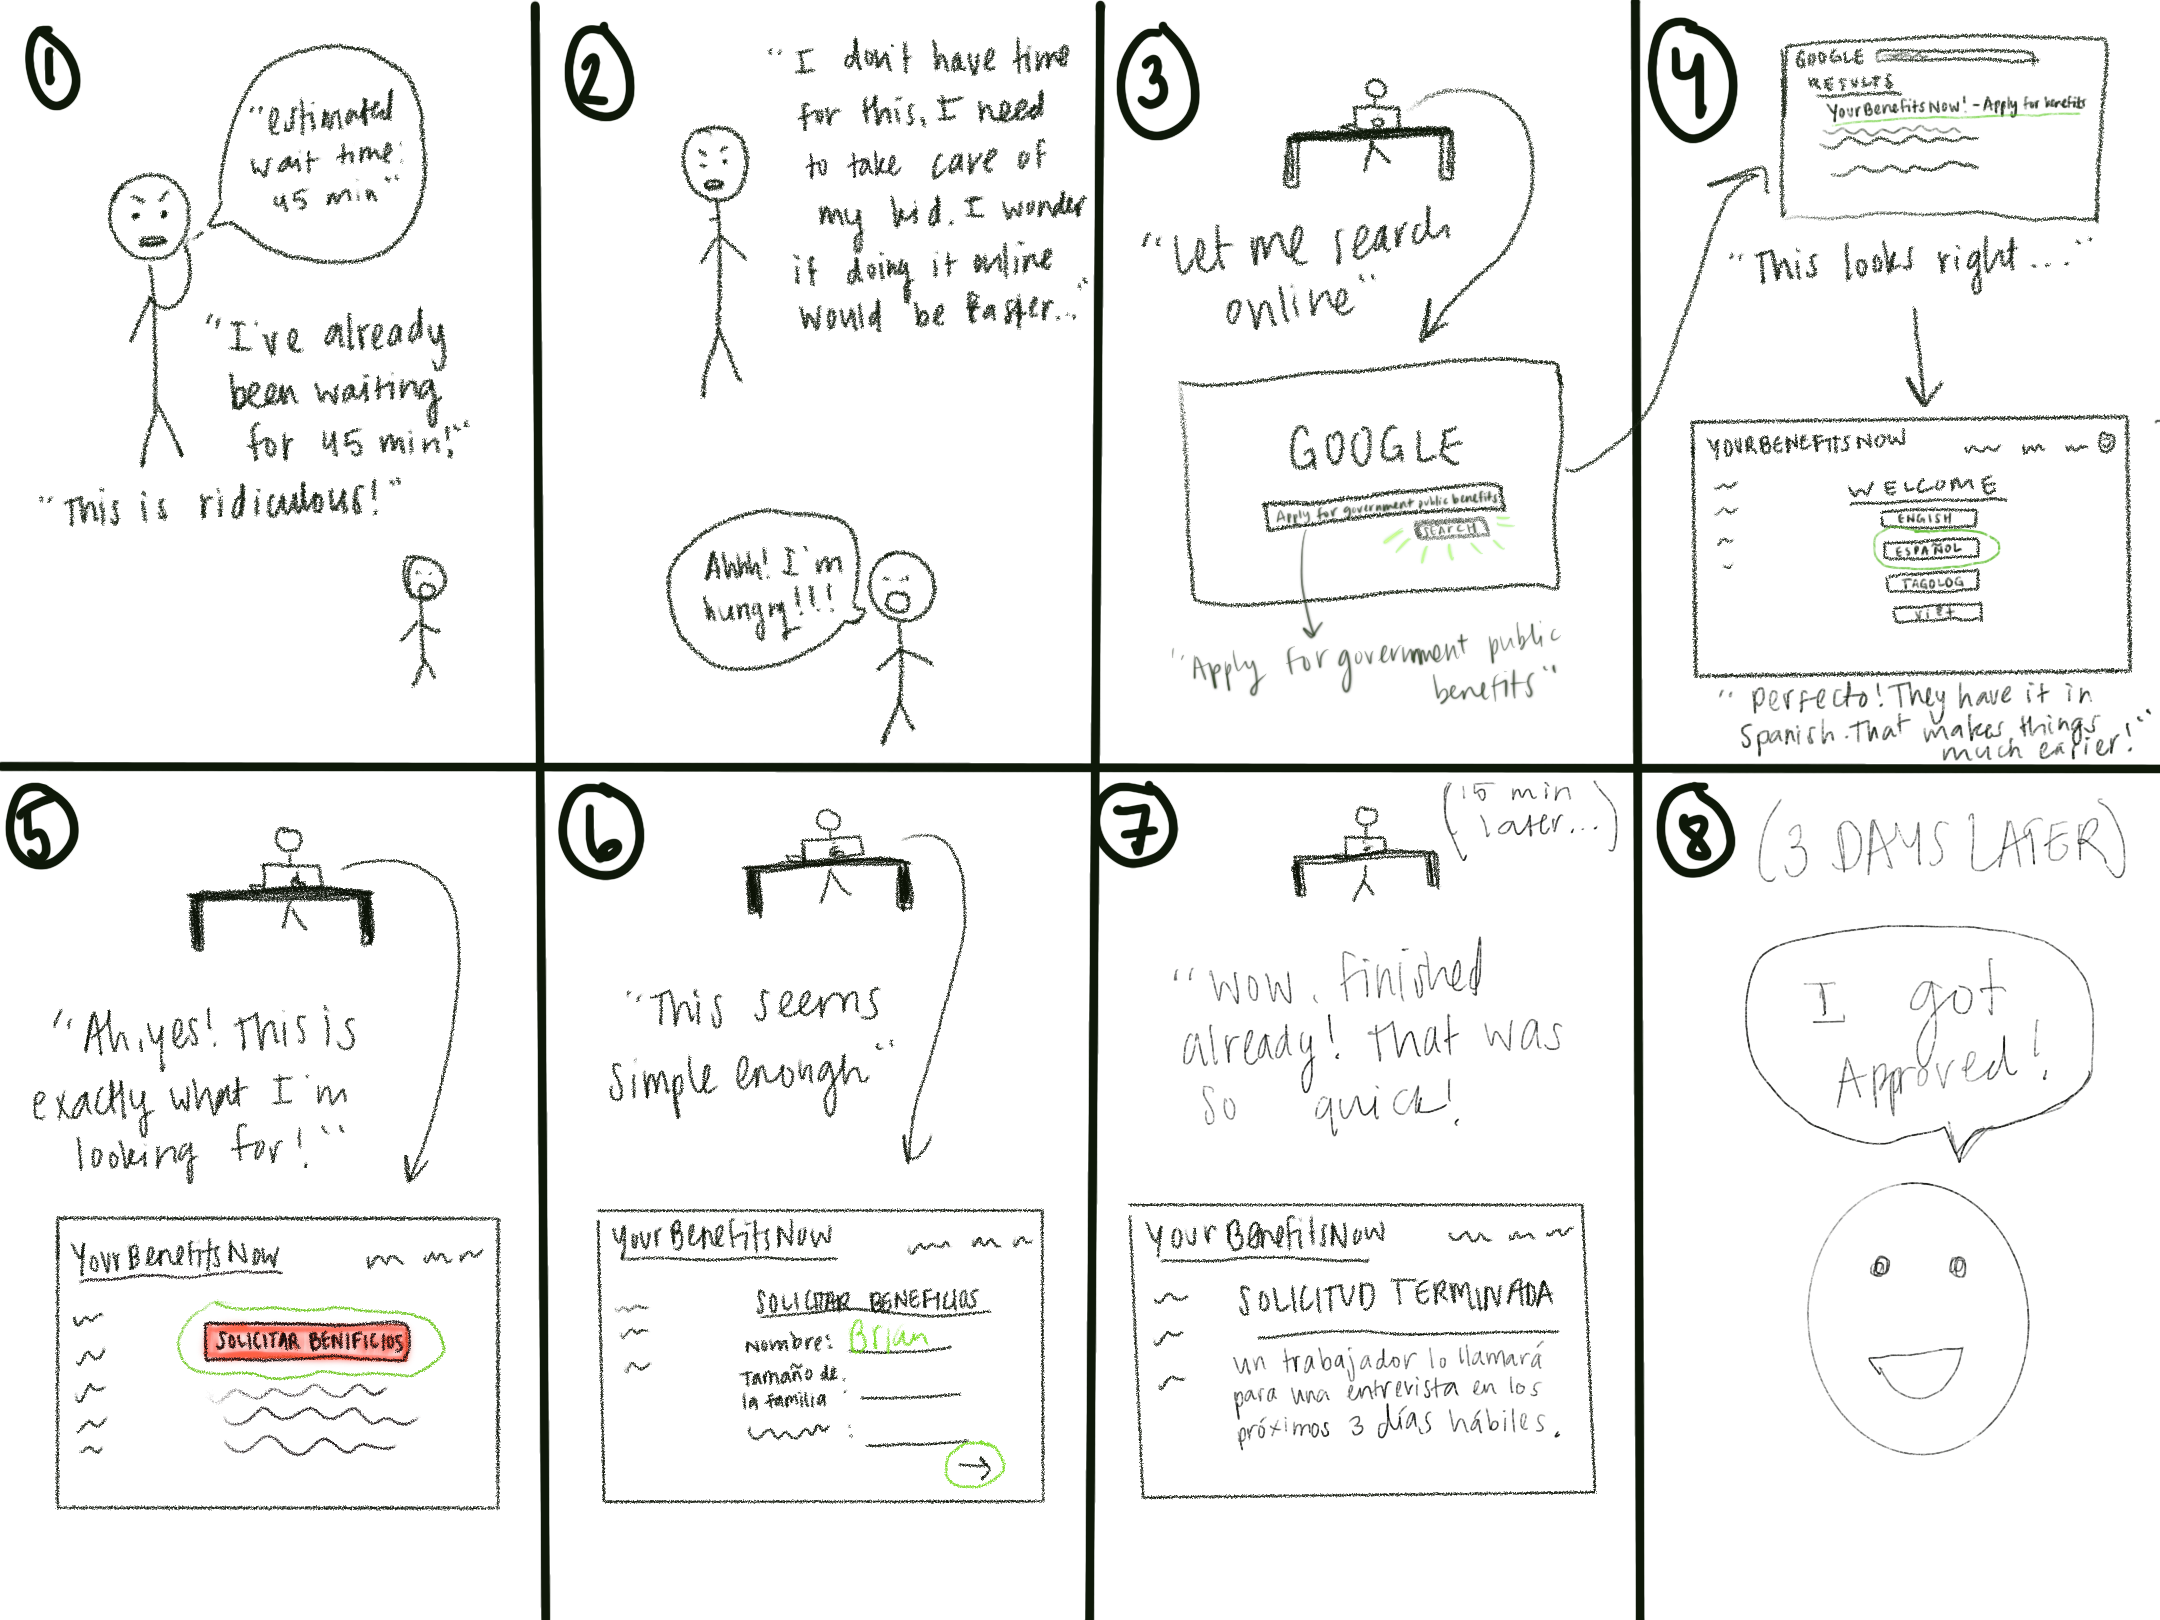 1
"estimated
wait time:
45 min"
"I've already
been waiting
for 45 min!"
"This is ridiculous!"
2
"I don't have time
for this. I need
to take care of
my kid. I wonder
if doing it online
would be faster..."
Ahhh! I'm
hungry!!!
3
"Let me search
online"
GOOGLE
Apply for government public benefits
SEARCH
"Apply for government public
benefits"
4
GOOGLE
RESULTS
YourBenefitsNow! - Apply for benefits
"This looks right..."
YOURBENEFITSNOW
WELCOME
ENGISH
ESPAÑOL
TAGOLOG
VIET
"perfecto! They have it in
Spanish. That makes things
much easier!"
5
"Ah, yes! This is
exactly what I'm
looking for!"
YourBenefitsNow
SOLICITAR BENIFICIOS
6
"This seems
simple enough"
YourBenefitsNow
SOLICITAR BENEFICIOS
Nombre: Brian
Tamaño de
la familia :
:
7
(15 min
later...)
"Wow. Finished
already! That was
so quick!
YourBenefitsNow
SOLICITUD TERMINADA
un trabajador lo llamará
para una entrevista en los
próximos 3 días hábiles.
8
(3 DAYS LATER)
I got
Approved!